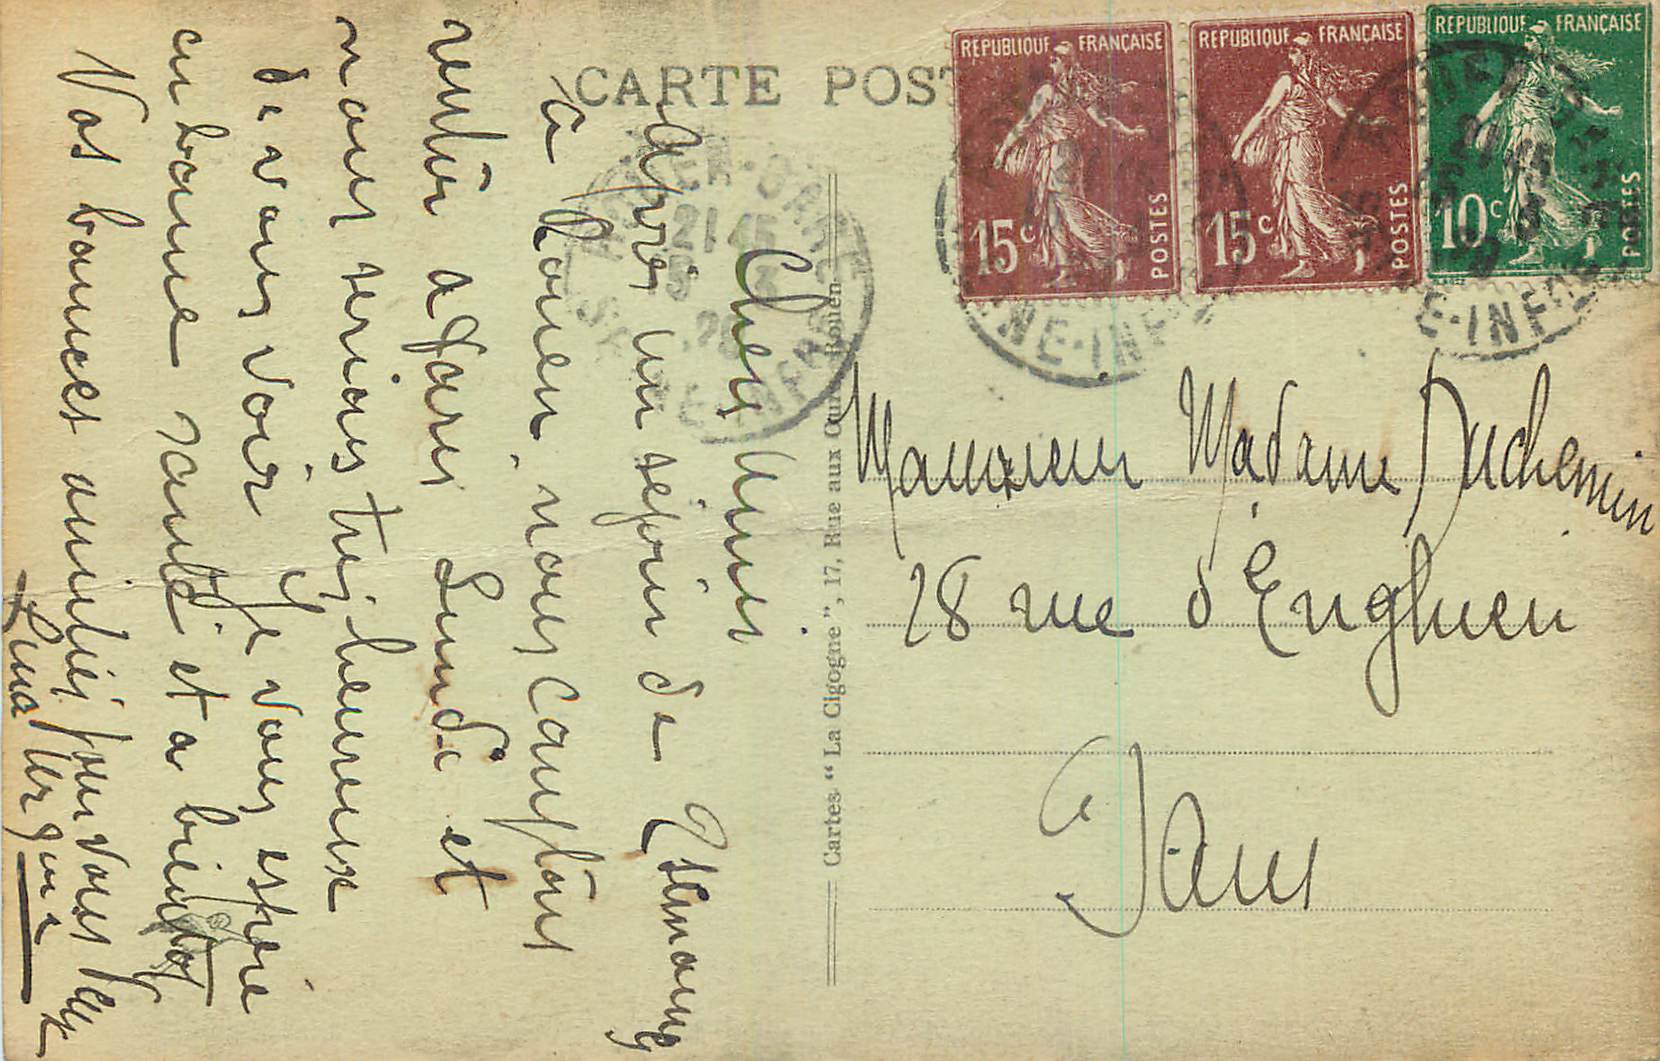 CARTE POST
REPUBLIQUE FRANÇAISE
15c POSTES
REPUBLIQUE FRANÇAISE
15c POSTES
REPUBLIQUE FRANÇAISE
10c POSTES
21 45
5
INFRE
ENE-INF
E-INF
Chers Amis
Après un séjour de semaines
à Rouen, nous comptons
rentrer a Paris Lundi et
nous serions très heureux
de vous voir Je vous espère
en bonne santé et a bientot
Vos bonnes amitiés pour vous
Cartes "La Cigogne", 17, Rue aux Ours - Rouen
Monsieur Madame Duchemin
28 rue d'Enghien
Paris